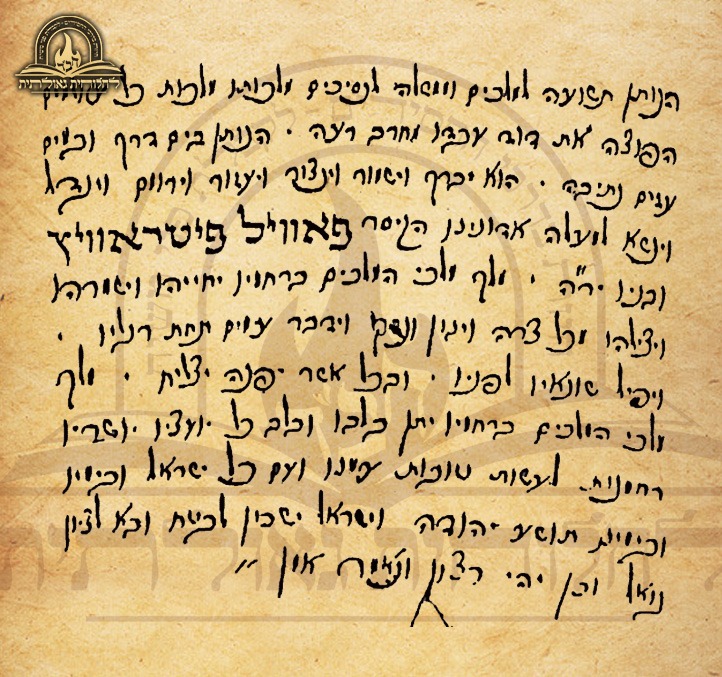 הנותן תשועה למלכים וממשלה לנסיכים מלכותו מלכות כל עולמים
הפוצה את דוד עבדו מחרב רעה . הנותן בים דרך ובמים
עזים נתיבה . הוא יברך וישמור וינצור ויעזור וירומם ויגדל
וינשא למעלה אדונינו הקיסר פאוויל פיטראוויץ
ובניו יר"ה . מלך מלכי המלכים ברחמיו יחייהו וישמרהו
ויצילהו מכל צרה ויגון ונזק וידבר עמים תחת רגליו .
ויפיל שונאיו לפניו . ובכל אשר יפנה יצליח . מלך
מלכי המלכים ברחמיו יתן בלבו ובלב כל יועציו ושריו
רחמנות לעשות טובות עמנו ועם כל ישראל ובימיו
ובימינו תושע יהודה וישראל ישכון לבטח ובא לציון
גואל וכן יהי רצון ונאמר אמן